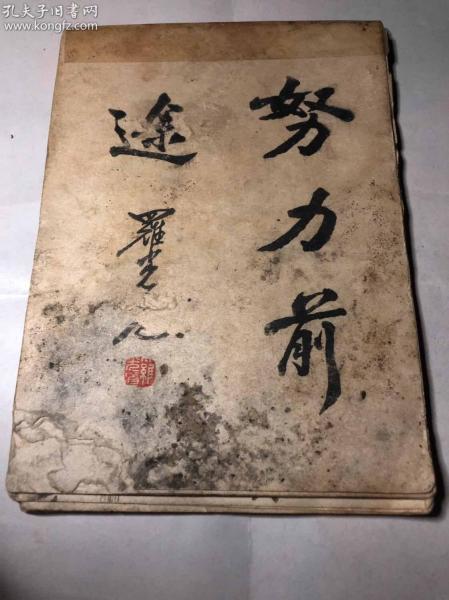 孔夫子旧书网
www.kongfz.com
努力前
途
羅光